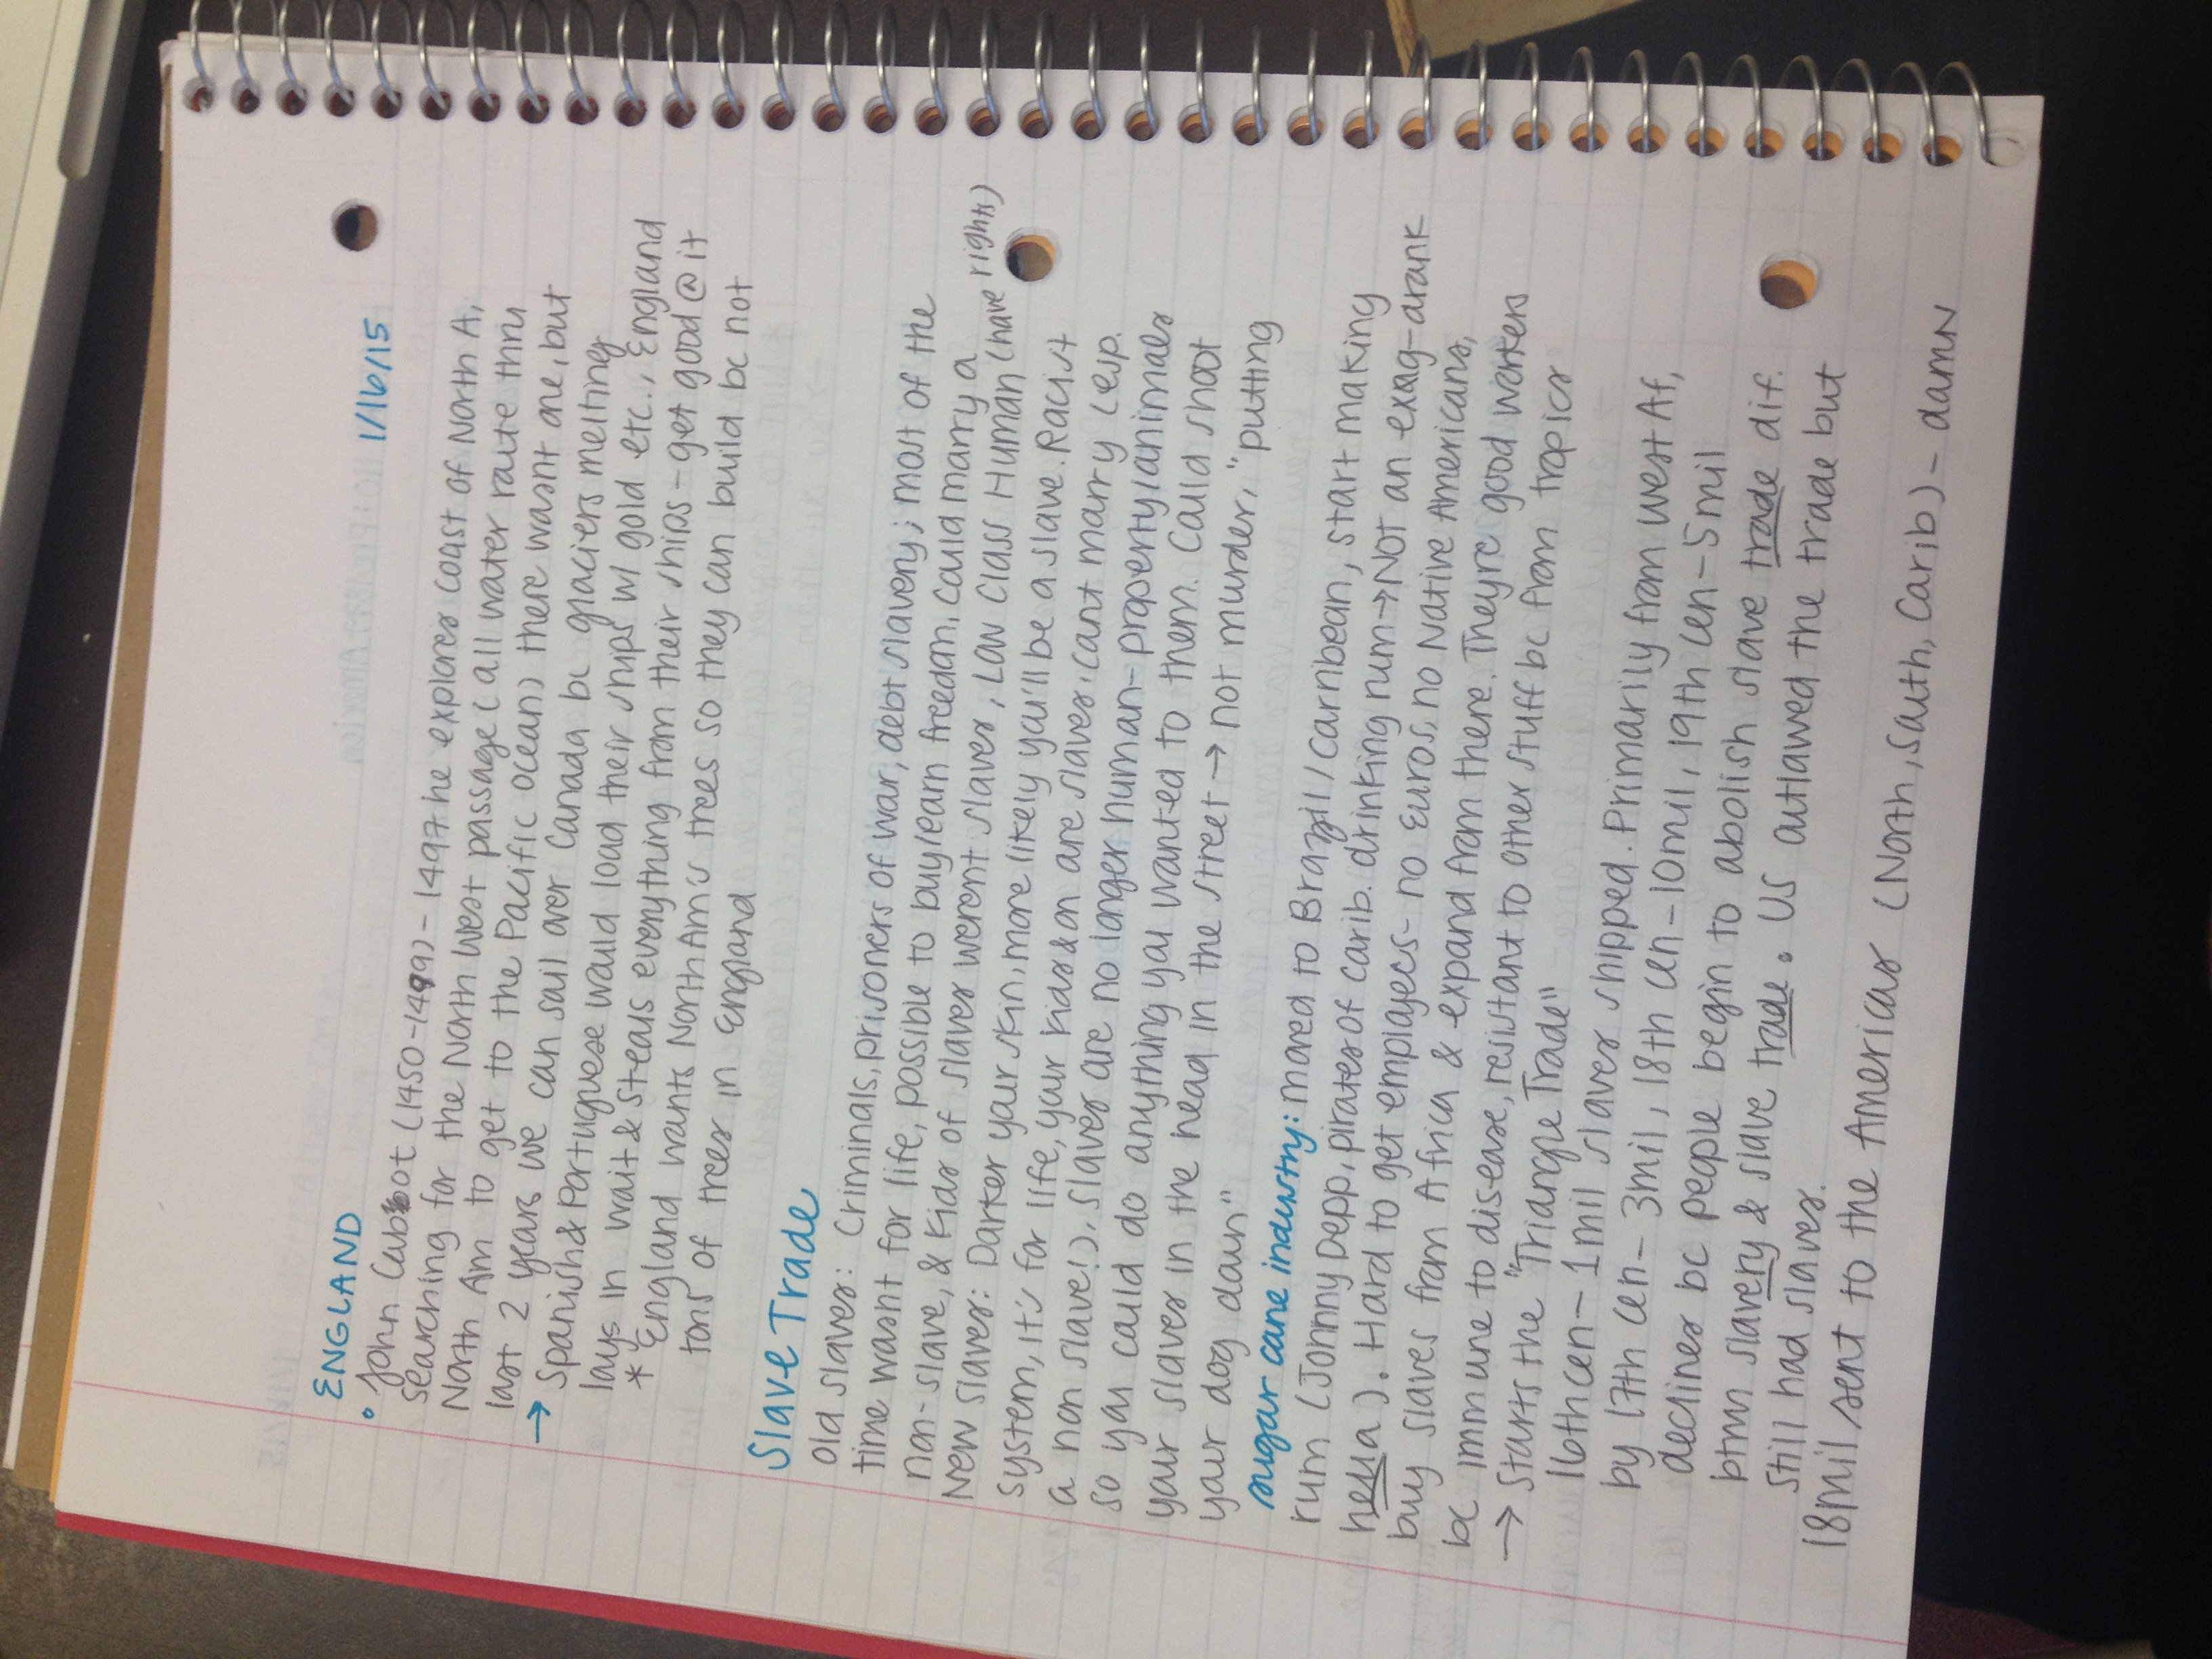 1/16/15
ENGLAND
• John Cabot (1450-1499) - 1497 he explores coast of North A,
searching for the North West passage (all water route thru
North Am to get to the Pacific Ocean) there wasnt one, but
last 2 years we can sail over Canada bc glaciers melting
→ Spanish & Portuguese would load their ships w/ gold etc., England
lays in wait & steals everything from their ships - get good @ it
* England wants North Am's trees so they can build bc not
tons of trees in England
Slave Trade
Old slaves: Criminals, prisoners of war, debt slavery; most of the
time wasnt for life, possible to buy/earn freedom, could marry a
non-slave, & kids of slaves werent slaves, Low Class Human (have rights)
New slaves: Darker your skin, more likely you'll be a slave. Racist
system, it's for life, your kids & on are slaves, cant marry (esp.
a non slave!), slaves are no longer human - property/animals
so you could do anything you wanted to them. Could shoot
your slaves in the head in the street → not murder, "putting
your dog down"
sugar cane industry: moved to Brazil/Carribean, start making
rum (Jonny Depp, pirates of carib. drinking rum → NOT an exag - drank
hella). Hard to get employees - no Euros, no Native Americans,
buy slaves from Africa & expand from there. Theyre good workers
bc immune to disease, resistant to other stuff bc from tropics
→ Starts the "Triangle Trade"
16th cen - 1 mil slaves shipped. Primarily from West Af,
by 17th cen - 3mil, 18th cen - 10mil, 19th cen - 5mil
declines bc people begin to abolish slave trade dif.
btwn slavery & slave trade. US outlawed the trade but
still had slaves.
18mil sent to the Americas (North, South, Carib) - damn